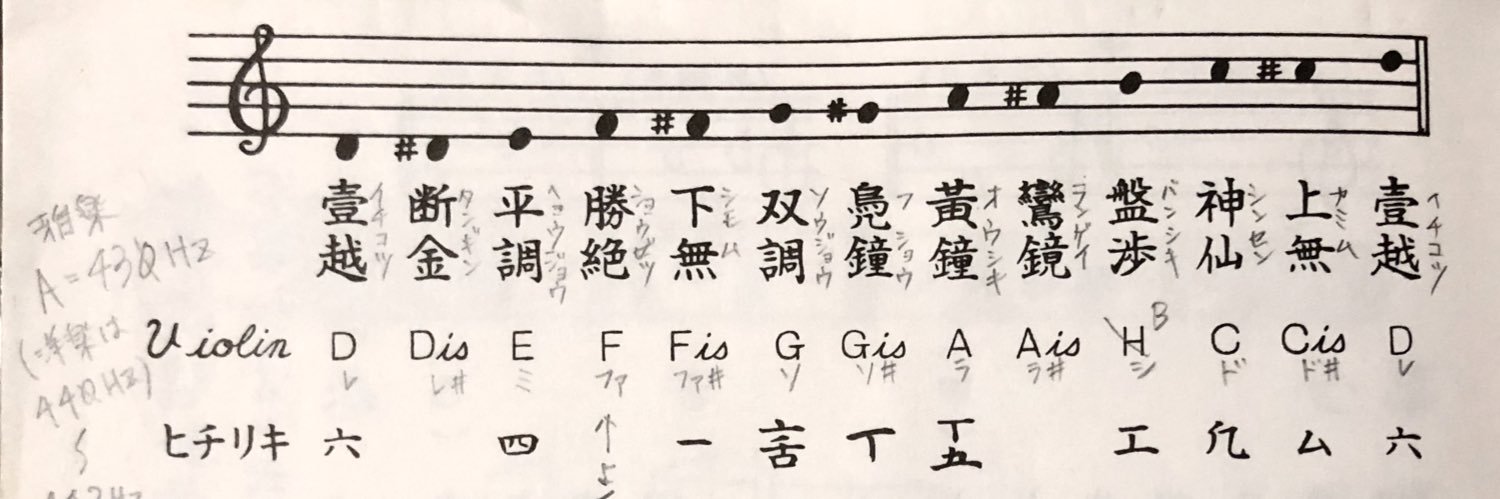 壹越 断金 平調 勝絶 下無 双調 鳧鐘 黃鐘 鸞鏡 盤渉 神仙 上無 壹越
イチコツ タンギン ヒョウジョウ ショウゼツ シモム ソウジョウ フショウ オウシキ ランケイ バンシキ シンセン カミム イチコツ
雅楽
A=430Hz
(洋楽は
440Hz)
442Hz
Violin D Dis E F Fis G Gis A Ais H B C Cis D
レ レ# ミ ファ ファ# ソ ソ# ラ ラ# シ ド ド# レ
ヒチリキ 六 四 一 丄 丅 丅五 工 凢 ム 六